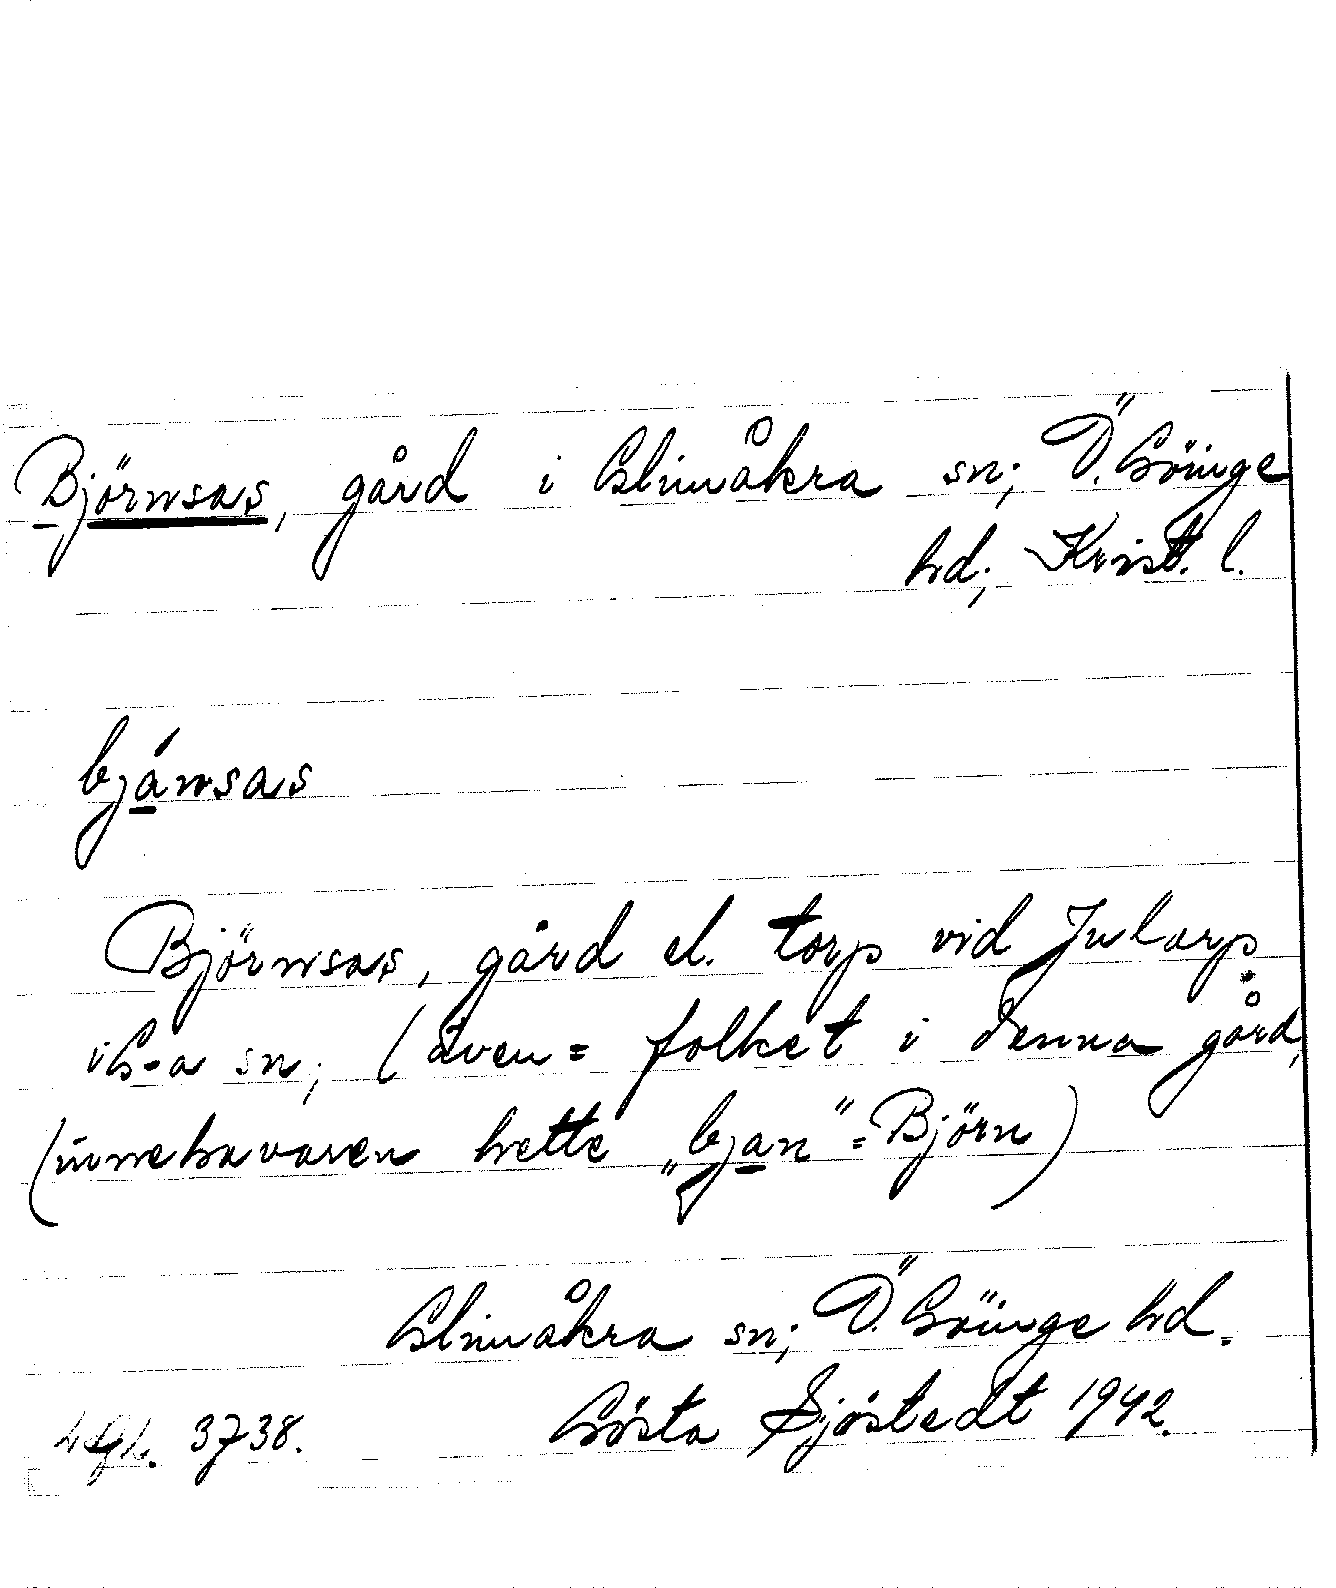 Björnsas, gård i Glimåkra sn; Ö. Göinge
hd; Krist. l.
bjánsas
Björnsas, gård el. torp vid Jularp
i G-a sn; (även = folket i denna gård,
(innehavaren hette „bjan" = Björn)
Glimåkra sn; Ö. Göinge hd.
Gösta Sjöstedt 1942.
3738.